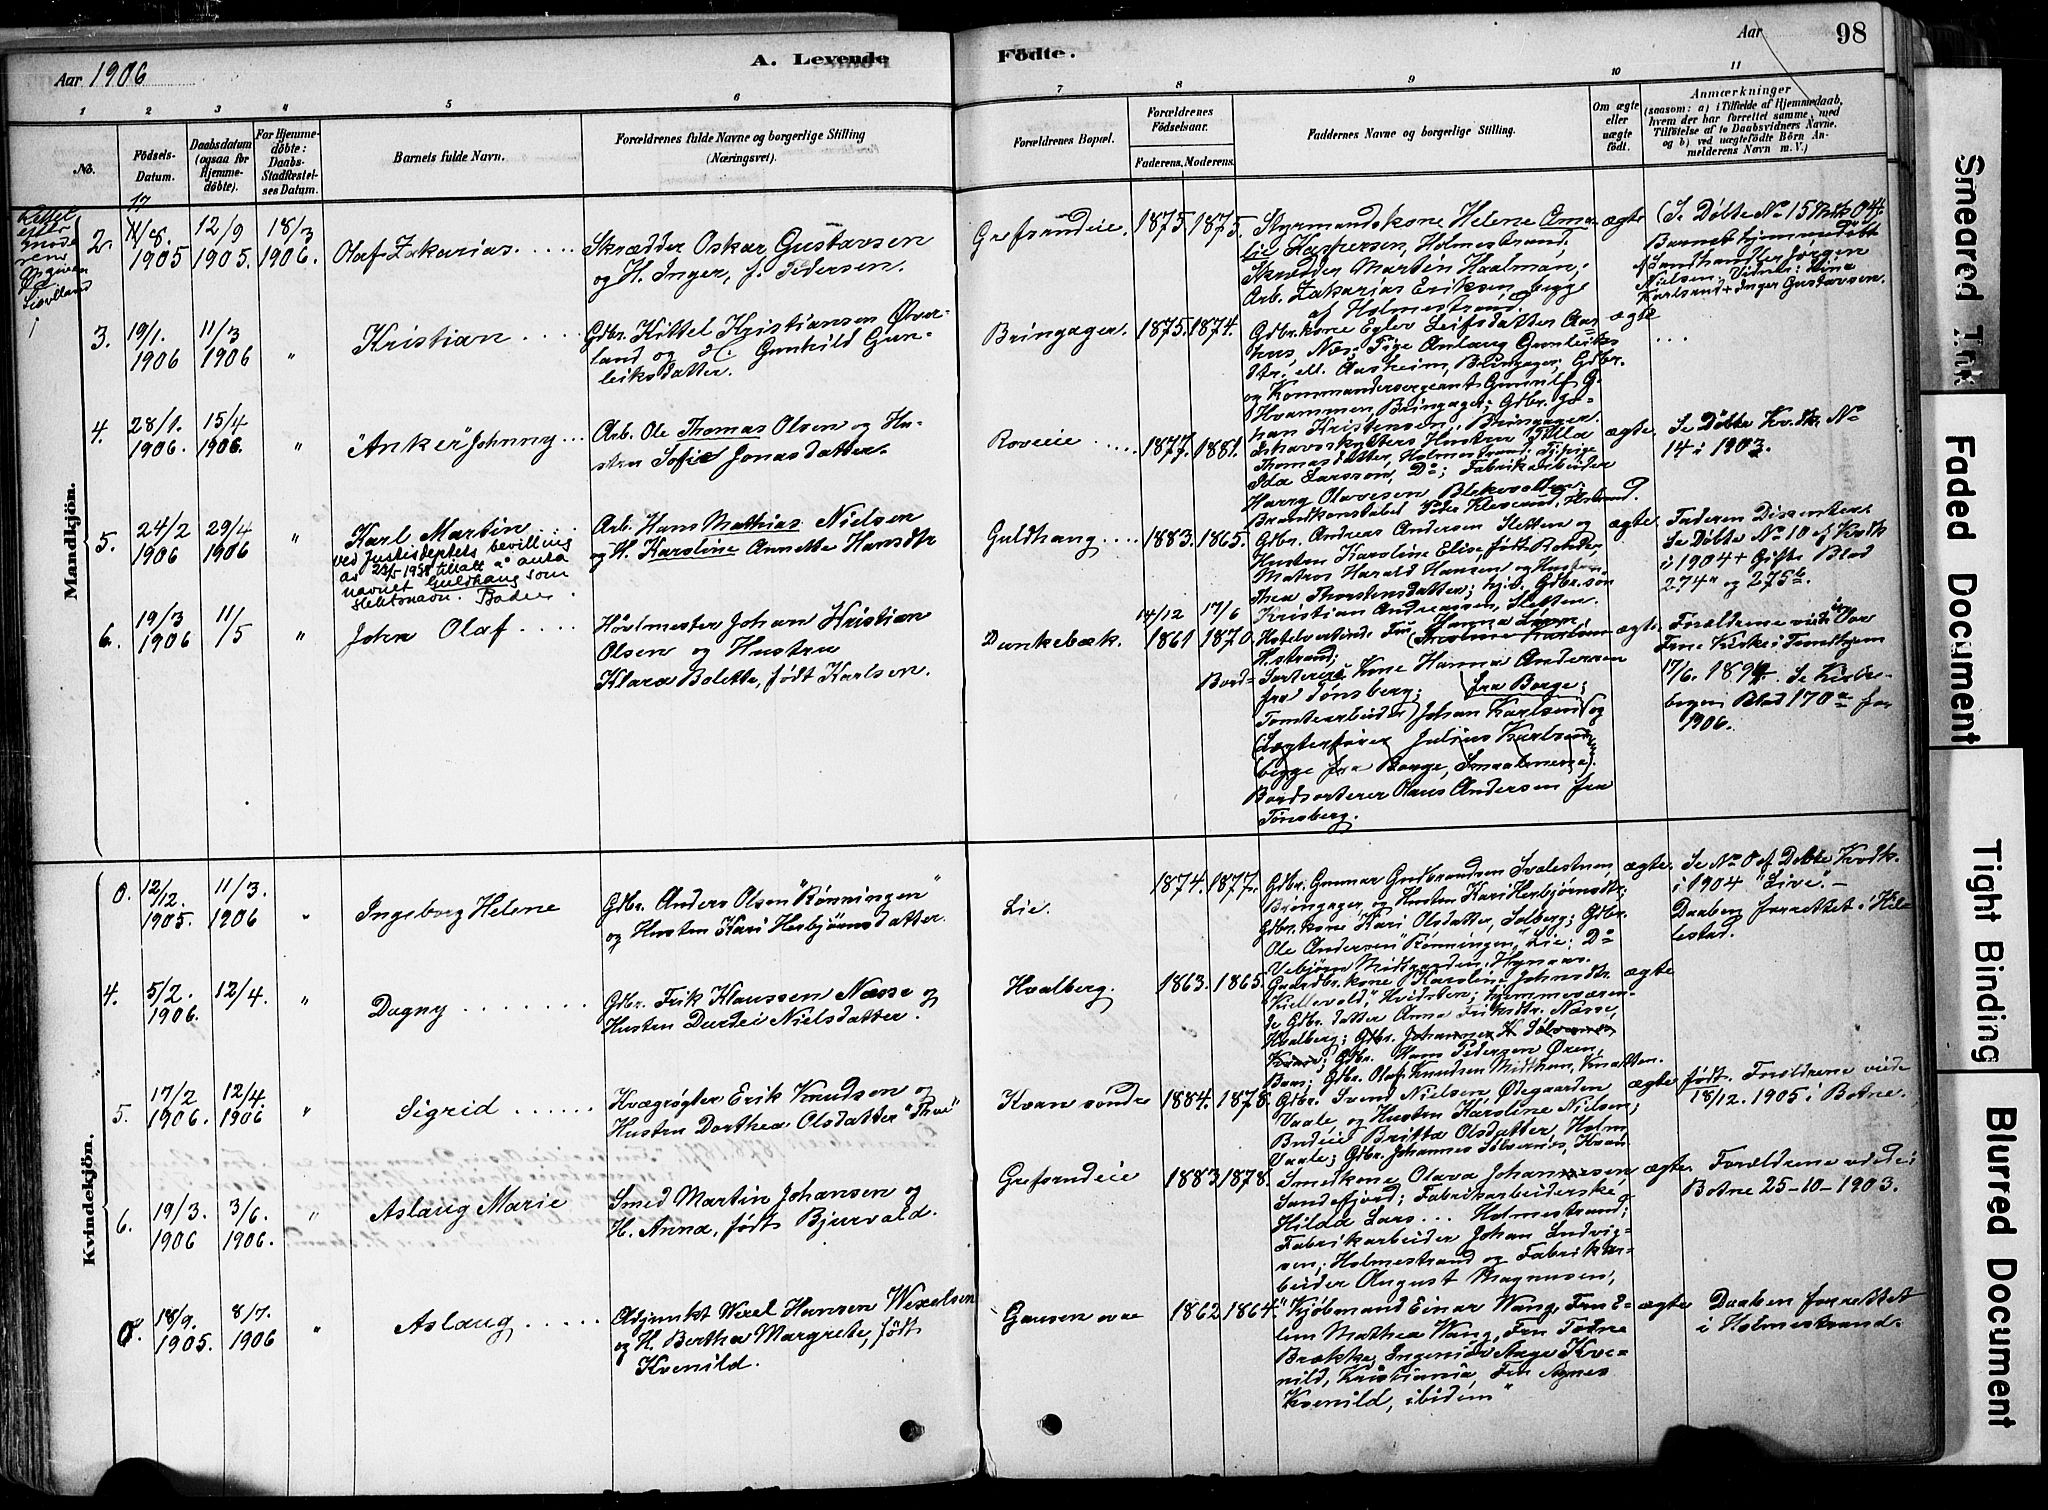 Aar 1906
A. Levende
Fødte.
Aar
98
1
2
3
4
5
6
7
8
9
10
11
No.
Fødsels-
Datum.
Daabsdatum
(ogsaa for
Hjemme-
døbte).
For Hjemme-
døbte:
Daabs-
Stadfæstel-
ses Datum.
Barnets fulde Navn.
Forældrenes fulde Navne og borgerlige Stilling
(Næringsvei).
Forældrenes Bopæl.
Forældrenes
Fødselsaar.
Faderens.
Moderens.
Faddernes Navne og borgerlige Stilling.
Om ægte
eller
uægte
født.
Anmærkninger
(saasom: a) i Tilfælde af Hjemmedaab,
hvem der har forrettet samme, med
Tilføielse af to Daabsvidners Navne,
og b) ved uægtefødte Børn An-
melderens Navn m. V.)
Mandkjön.
2.
17
/8.
1905
12/9
1905.
18/3
1906.
Olaf Zakarias
Skrædder Oskar Gustavsen
og H. Inger, f. Pedersen.
Grefsrudeie.
1875.
1875.
Styrmandskone Helene Ama-
lie Kaspersen, Holmestrand,
Skrædder Martin Haalman,
Arb. Zakarias Eriksen, begge
af Holmestrand.
ægte
(Se Døbte No 15 Mdk 04.
Barnet hjemmedøbt
af Landhandler Jørgen
Nielsen. Vidner: Lina
Karlsund + Inger Gustavsen.
3.
19/1.
1906
11/3
1906
"
Kristian
Gdbr. Kittel Kristiansen Øver-
land og H. Gunhild Gun-
leiksdatter.
Bringager.
1875.
1874.
Gdbr.kone Eglev Leifsdatter Aar-
hus, Næs; Pige Anlaug Gunleiks
dtr. Ml. Aasheim, Bringager; Gdbr.
og Kommandersergeant Gunulf G.
Hvammen, Bringager; Gdbr. Jo-
han Kristensen, Bringager.
ægte
4.
28/1.
1906.
15/4
1906.
"
"Anker" Johnny
Arb. Ole Thomas Olsen og Hu-
stru Sofie Jonasdatter.
Roveie
1877.
1881.
Ishavsskytters Hustru Tilla
Thomasdatter, Holmestrand;
Ida Larsson, Do; Fabrikarbeider
Harry Olavesen, Blekevolden;
ægte.
Se Døbte Kvdk. No
14 i 1903.
5.
24/2
1906
29/4
1906
"
Karl Martin
ved Justisdeptets bevilling
av 23/5-1958 tillatt å anta
navnet Guldhaug som
slektsnavn.
Arb. Hans Mathias Nielsen
og H. Karoline Annette Hansdtr
Guldhaug
1883.
1865.
Gdbr. Andreas Andersen Sletten og
Hustru Karoline Elise, født Rohde,
Matros Harald Hansen og Hustru
Thea Thorstensdatter; Gdbr.søn
Kristian Andreassen, Sletten.
ægte
Faderen Dissenter.
Se Døbte No 10 af Kvdk
i 1904 + Gifte Blad
274a og 275b.
6.
19/3
1906
11/5
"
John Olaf
Høvlmester Johan Kristian
Olsen og Hustru
Klara Bolette, født Karlsen.
Dunkebæk.
14/12
1861
17/6
1870.
Hotelvertinde Frk. Hanna Larsen
H.strand;
Bord-Sorterers Kone Hanna Andersen
fra Tønsberg;
fra Borge;
Tomtearbeider Johan Karlsen og
Lægterfører Julius Karlsen
begge fra Borge, Smaalenene.
Bordsorterer Olaus Andersen fra
Tønsberg.
ægte.
Forældrene viede i Vor
Frue Kirke i Trondhjem
17/6. 1894. Se Kirke-
bogen Blad 170a for
1906.
Kvindekjön.
0.
12/12.
1905.
11/3.
1906
"
Ingeborg Helene
Gdbr. Anders Olsen "Rønningen"
og Hustru Kari Herbjørnsdatter.
Lie.
1874.
1877.
Gdbr. Gunnar Gudbrandsen Svalestuen,
Bringager, og Hustru Kari Herbjørnsdtr.;
Gdbr.kone Kari Olsdatter, Solberg; Gdbr.
Ole Andersen "Rønningen," Lie; Do
Vebjørn Midtgaarden,
ægte.
Se No 8 af Døbte Kvdk.
i 1904 "Live".-
Daaben forrettet i Hil-
lestad.
4.
5/2.
1906.
12/4.
"
Dagny
Gdbr. Erik Klaussen Næsse og
Hustru Durdei Nielsdatter.
Hvalberg.
1863.
1865.
Gaardbr.kone Karoline Johnsdtr.
"Killevold," Hvidsten; hjemmeværen-
de Gdbr.datter Anna Eriksdtr. Næsse,
Hvalberg; Gdbr. Johannes K Solvernes
Kvan; Gdbr. Hans Pedersen Øren,
Gdbr. Olaf Knudsen Midthun, Knatten.
ægte
5.
17/2
1906.
12/4.
1906
"
Sigrid
Kvægrøgter Erik Knudsen og
Hustru Dorthea Olsdatter "Thve"
Kvan søndre
1884.
1878.
Gdbr. Svend Nielsen, Ødegaarden
Vaale, og Hustru Karoline Nielsen;
Budeie Britta Olsdatter, Holm,
Vaale; Gdbr. Johannes Solvernes, Kvan.
ægte
født. Forældrene viede
18/12. 1905 i Botne.
6.
19/3.
1906
3/6.
1906.
"
Aslaug Marie
Smed Martin Johansen og
H. Anna, født Bjurvald.
Grefsrudeie
1883
1878.
Smedkone Olava Johannesen,
Sandefjord; Fabrikarbeiderske
Hilda Lars... Holmestrand;
Fabrikarbeider Johan Ludvig-
sen, Holmestrand og Fabrikar-
beider August Magnusen,
ægte.
Forældrene viede i
Botne 25-10-1903.
0.
18/9.
1905.
8/7.
1906
"
Aslaug
Adjunkt Wexel Hansen Wexelsen
og H. Bertha Margrete, født
Kvenild.
Gausen øvre
1862.
1864.
"Kjøbmand Einar Wang, Fru E-
lin Mathea Wang, Fru Tødne
Brække, Ingeniør Aage Kve-
nild, Kristiania, Fru Agnes
Kvenild, ibidem"
ægte
Daaben forrettet
i Holmestrand.
Smeared Ink
Faded Document
Tight Binding
Blurred Document